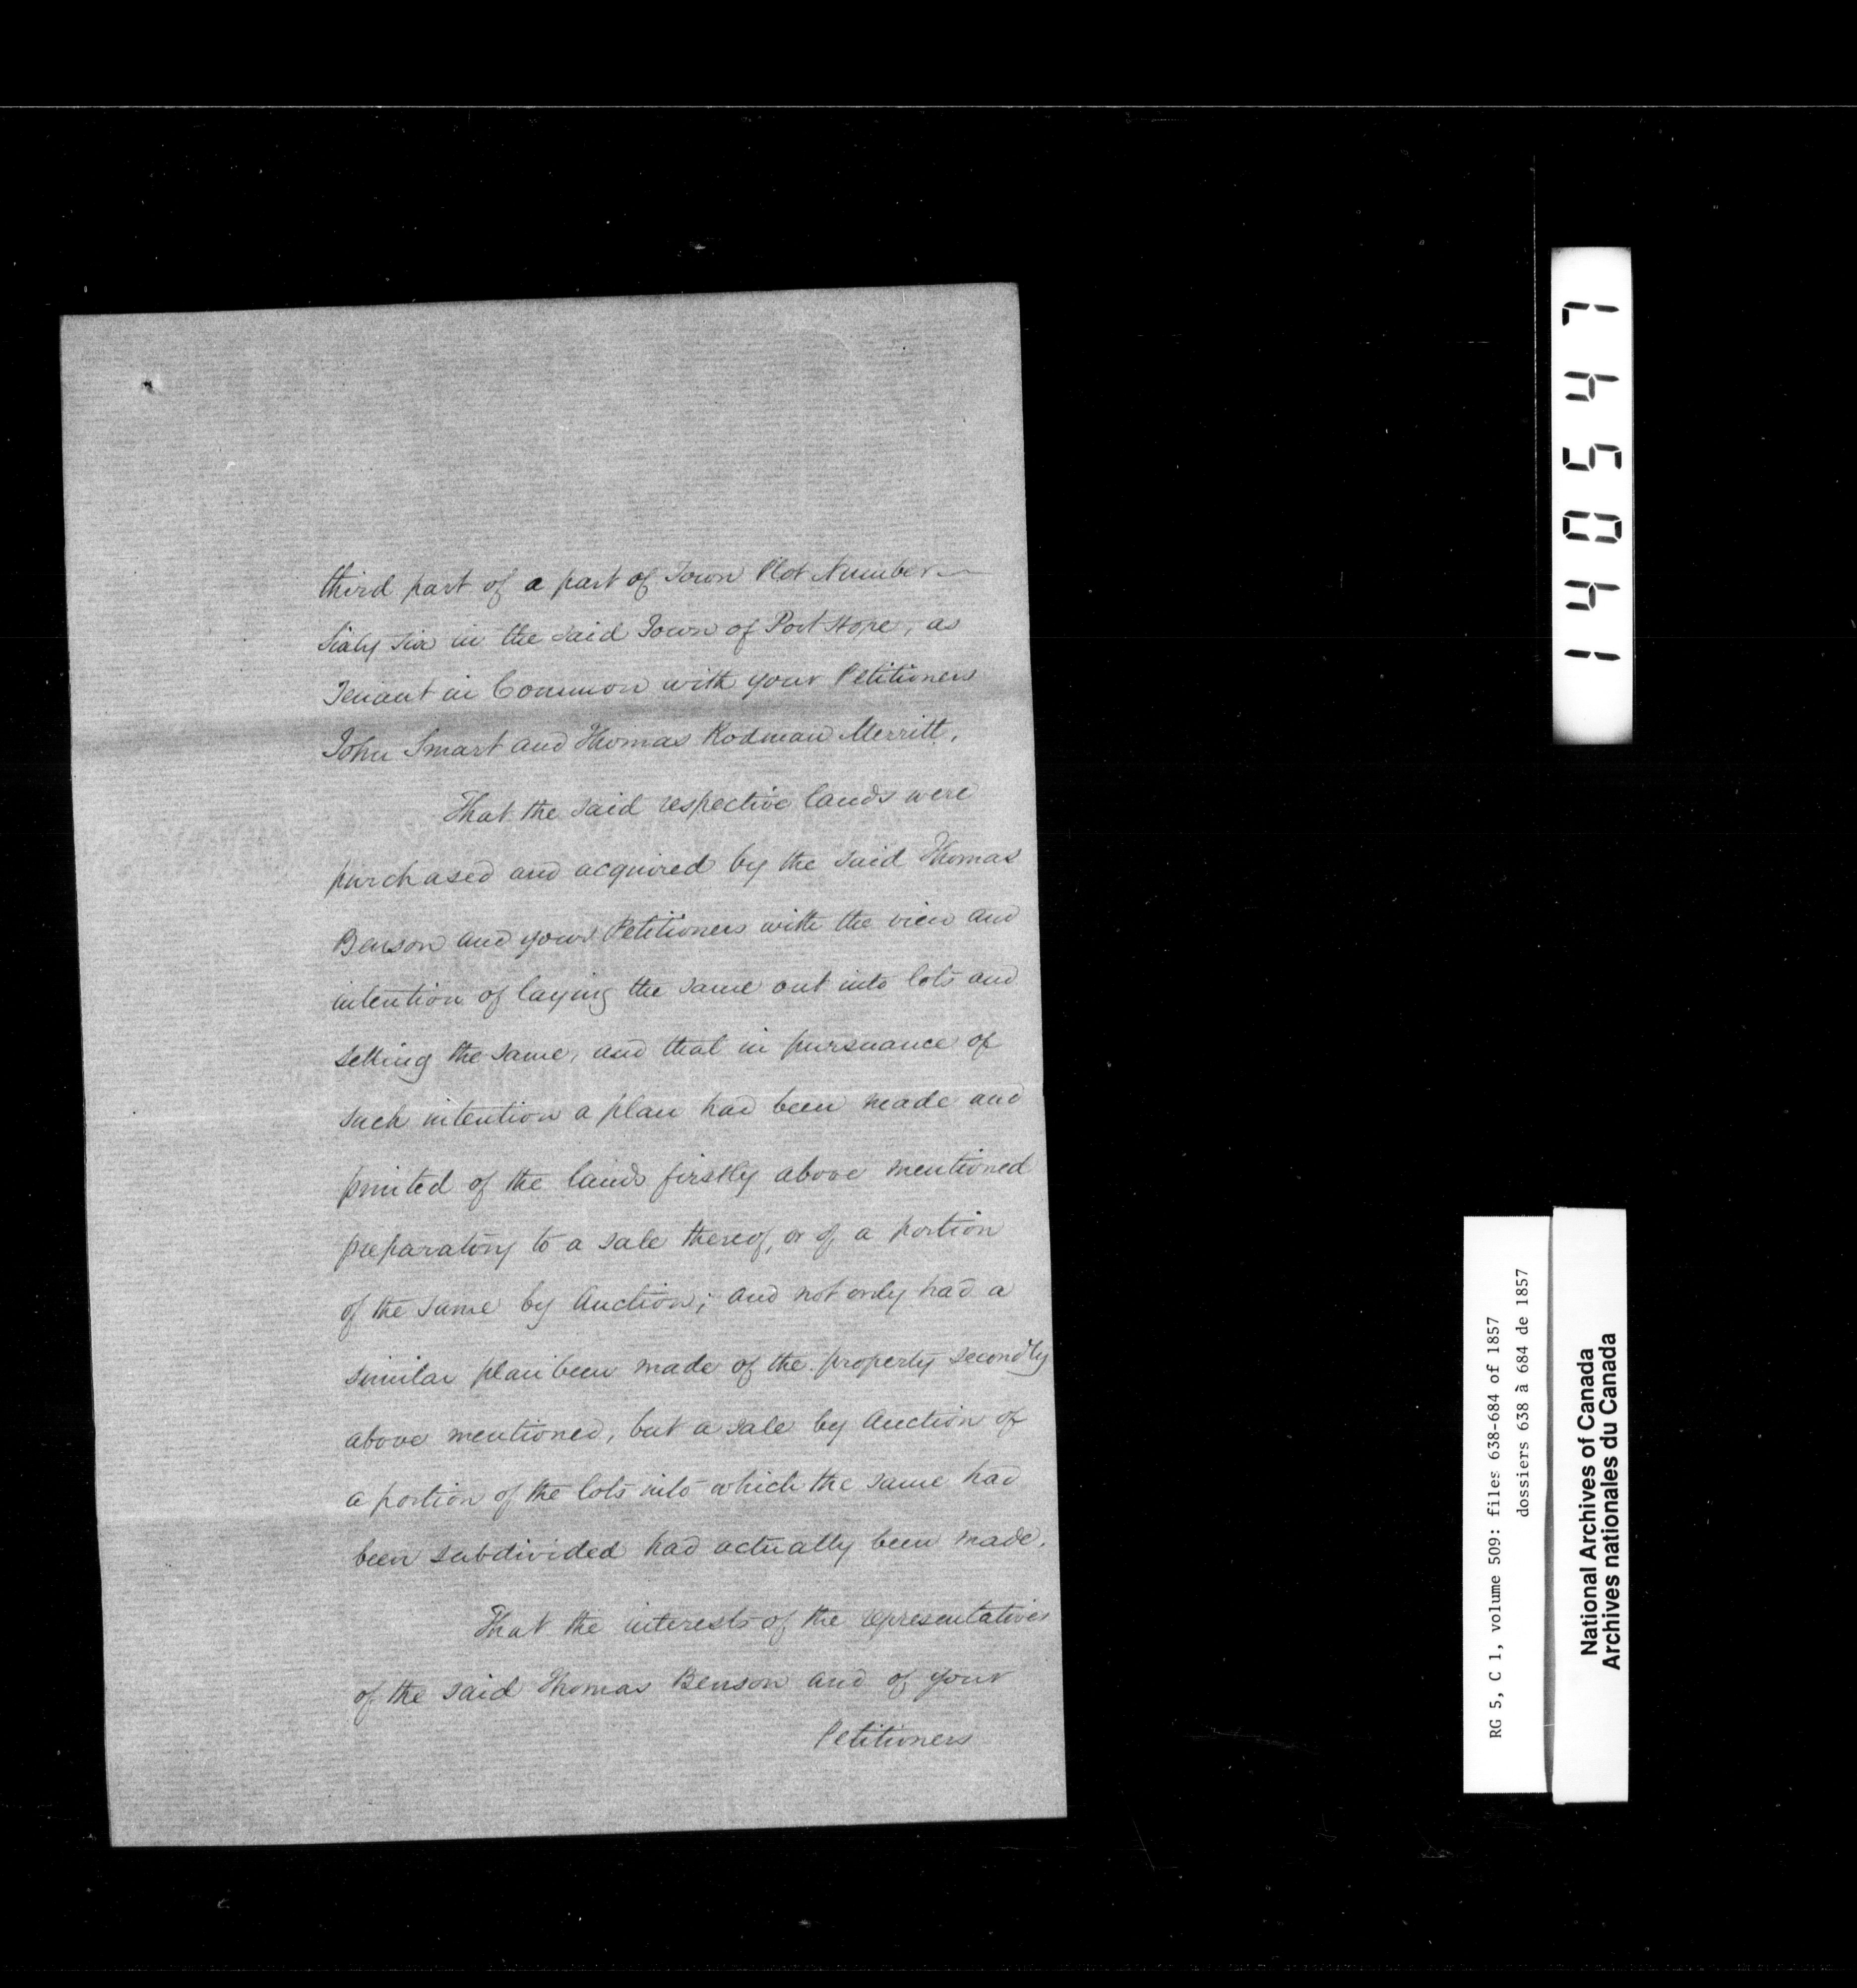 third part of a part of Town Plot Number
Sixty six in the said Town of Port Hope, as
Tenant in Common with your Petitioners
John Smart and Thomas Rodman Merritt.
That the said respective lands were
purchased and acquired by the said Thomas
Benson and your Petitioners with the view and
intention of laying the same out into lots and
selling the same, and that in pursuance of
such intention a plan had been made and
printed of the lands firstly above mentioned
preparatory to a sale thereof, or of a portion
of the same by Auction; and not only had a
similar plan been made of the property secondly
above mentioned, but a sale by Auction of
a portion of the lots into which the same had
been subdivided had actually been made.
That the interests of the representatives
of the said Thomas Benson and of your
Petitioners
140547
RG 5, C 1, volume 509: files 638-684 of 1857
dossiers 638 à 684 de 1857
National Archives of Canada
Archives nationales du Canada